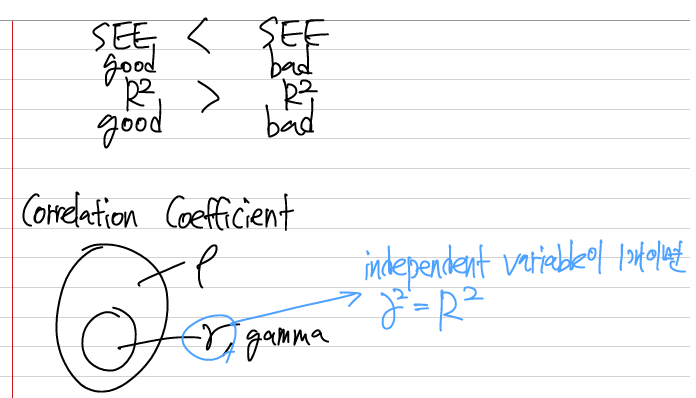 SEE < SEE
good bad
R² > R²
good bad
Correlation Coefficient
ρ
independent variable이 1개이면
γ² = R²
γ, gamma